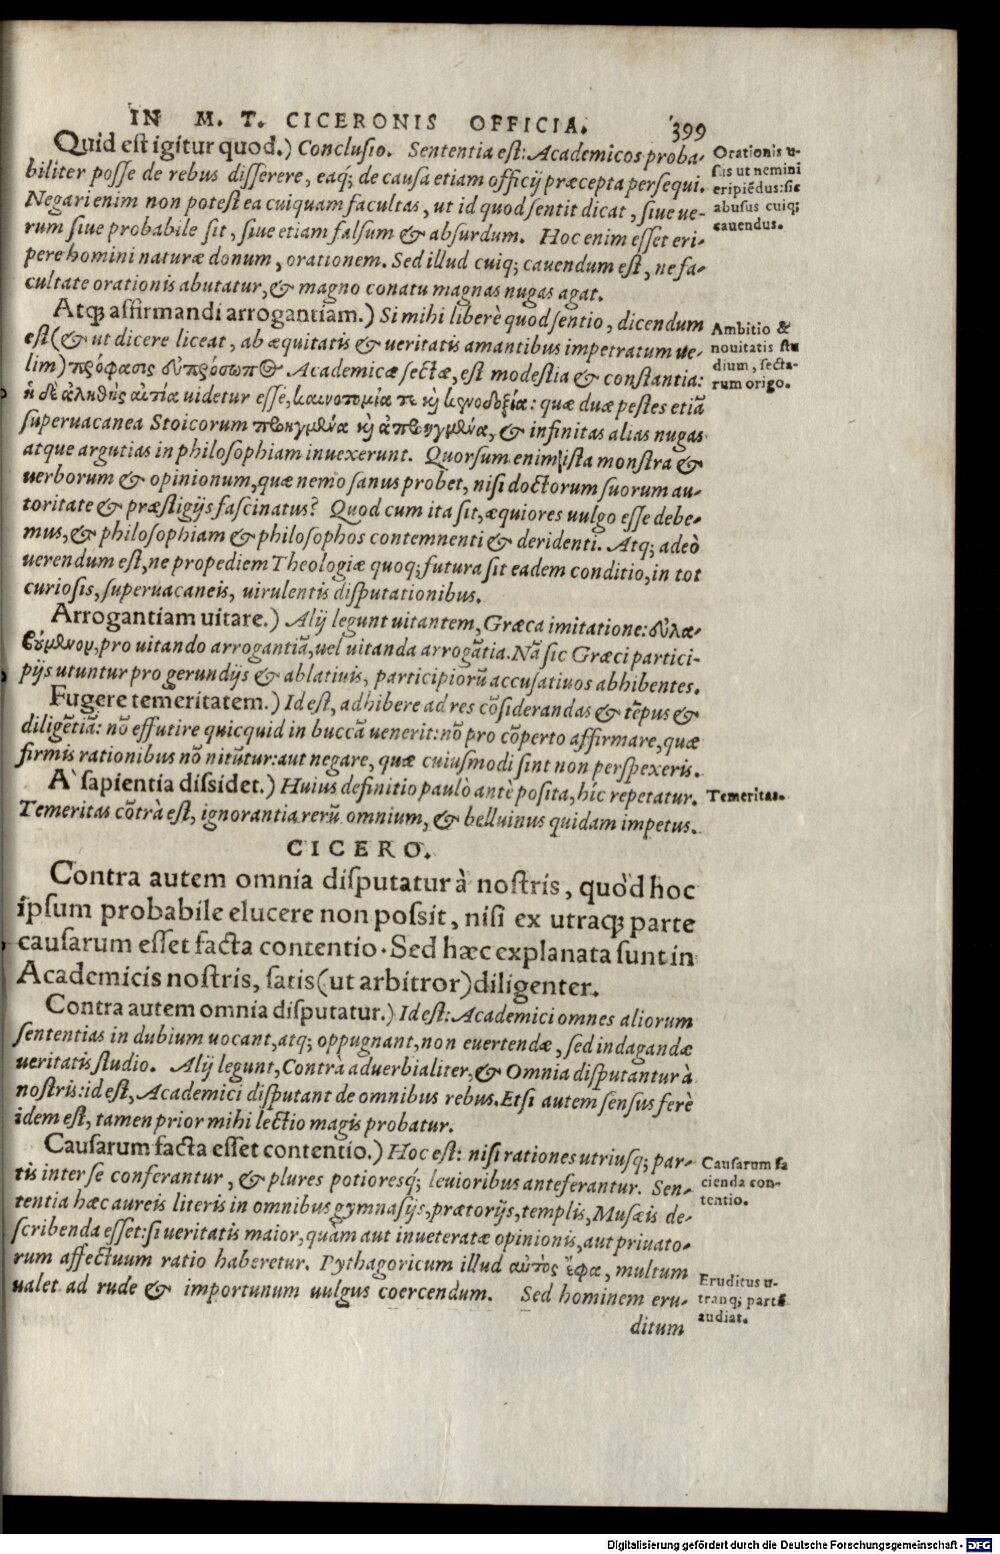 IN M. T. CICERONIS OFFICIA. 399
Quid est igitur quod.) Conclusio. Sententia est: Academicos proba-
biliter posse de rebus disserere, eaq; de causa etiam officij præcepta persequi.
Negari enim non potest ea cuiquam facultas, ut id quod sentit dicat, siue ue-
rum siue probabile sit, siue etiam falsum & absurdum. Hoc enim esset eri-
pere homini naturæ donum, orationem. Sed illud cuiq; cauendum est, ne fa-
cultate orationis abutatur, & magno conatu magnas nugas agat.
Orationis u-
sus ut nemini
eripiēdus: sic
abusus cuiq;
cauendus.
Atq; affirmandi arrogantiam.) Si mihi liberè quod sentio, dicendum
est (& ut dicere liceat, ab æquitatis & ueritatis amantibus impetratum ue-
lim) πρόφασις εὐπρόσωπος Academicæ sectæ, est modestia & constantia:
ἡ δὲ ἀληθὴς αἰτία uidetur esse, καινοτομία τε κỳ κενοδοξία: quæ duæ pestes etiā
superuacanea Stoicorum προηγμένα κỳ ἀποπροηγμένα, & infinitas alias nugas
atque argutias in philosophiam inuexerunt. Quorsum enim ista monstra &
uerborum & opinionum, quæ nemo sanus probet, nisi doctorum suorum au-
toritate & præstigijs fascinatus? Quod cum ita sit, æquiores uulgo esse debe-
mus, & philosophiam & philosophos contemnenti & deridenti. Atq; adeò
uerendum est, ne propediem Theologiæ quoq; futura sit eadem conditio, in tot
curiosis, superuacaneis, uirulentis disputationibus.
Ambitio &
nouitatis stu
dium, secta-
rum origo.
Arrogantiam uitare.) Alij legunt uitantem, Græca imitatione: εὐλα-
βούμενον, pro uitando arrogantiā, uel uitanda arrogātia. Nā sic Græci partici-
pijs utuntur pro gerundijs & ablatiuis, participiorū accusatiuos abhibentes.
Fugere temeritatem.) Id est, adhibere ad res cōsiderandas & tēpus &
diligētiā: nō effutire quicquid in buccā uenerit: nō pro cōperto affirmare, quæ
firmis rationibus nō nitūtur: aut negare, quæ cuiusmodi sint non perspexeris.
A` sapientia dissidet.) Huius definitio paulò antè posita, hîc repetatur.
Temeritas cōtrà est, ignorantia rerū omnium, & belluinus quidam impetus.
Temeritas.
CICERO.
Contra autem omnia disputatur à nostris, quòd hoc
ipsum probabile elucere non possit, nisi ex utraq; parte
causarum esset facta contentio. Sed hæc explanata sunt in
Academicis nostris, satis (ut arbitror) diligenter.
Contra autem omnia disputatur.) Id est: Academici omnes aliorum
sententias in dubium uocant, atq; oppugnant, non euertendæ, sed indagandæ
ueritatis studio. Alij legunt, Contrà aduerbialiter, & Omnia disputantur à
nostris: id est, Academici disputant de omnibus rebus. Etsi autem sensus ferè
idem est, tamen prior mihi lectio magis probatur.
Causarum facta esset contentio.) Hoc est: nisi rationes utriusq; par-
tis inter se conferantur, & plures potioresq́; leuioribus anteferantur. Sen-
tentia hæc aureis literis in omnibus gymnasijs, prætorijs, templis, Musæis de-
scribenda esset: si ueritatis maior, quàm aut inueteratæ opinionis, aut priuato-
rum affectuum ratio haberetur. Pythagoricum illud αὐτὸς ἔφα, multum
ualet ad rude & importunum uulgus coercendum. Sed hominem eru-
ditum
Causarum fa
cienda con-
tentio.
Eruditus u-
tranq; partē
audiat.
Digitalisierung gefördert durch die Deutsche Forschungsgemeinschaft - DFG